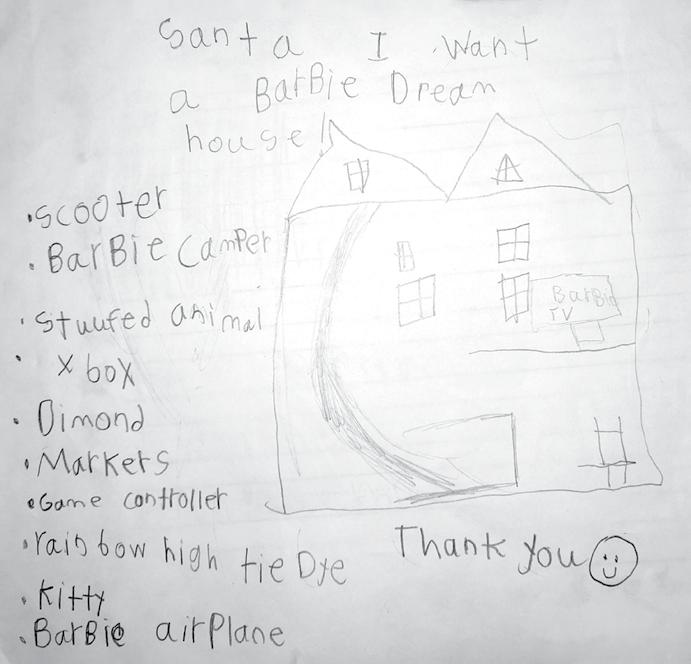 Santa I Want
a BarBie Dream
house!
• scooter
• BarBie Camper
• stuufed animal
• x box
• Dimond
• Markers
• Game controller
• rainbow high tie Dye
• Kitty
• BarBie airPlane
BarBie
TV
Thank you